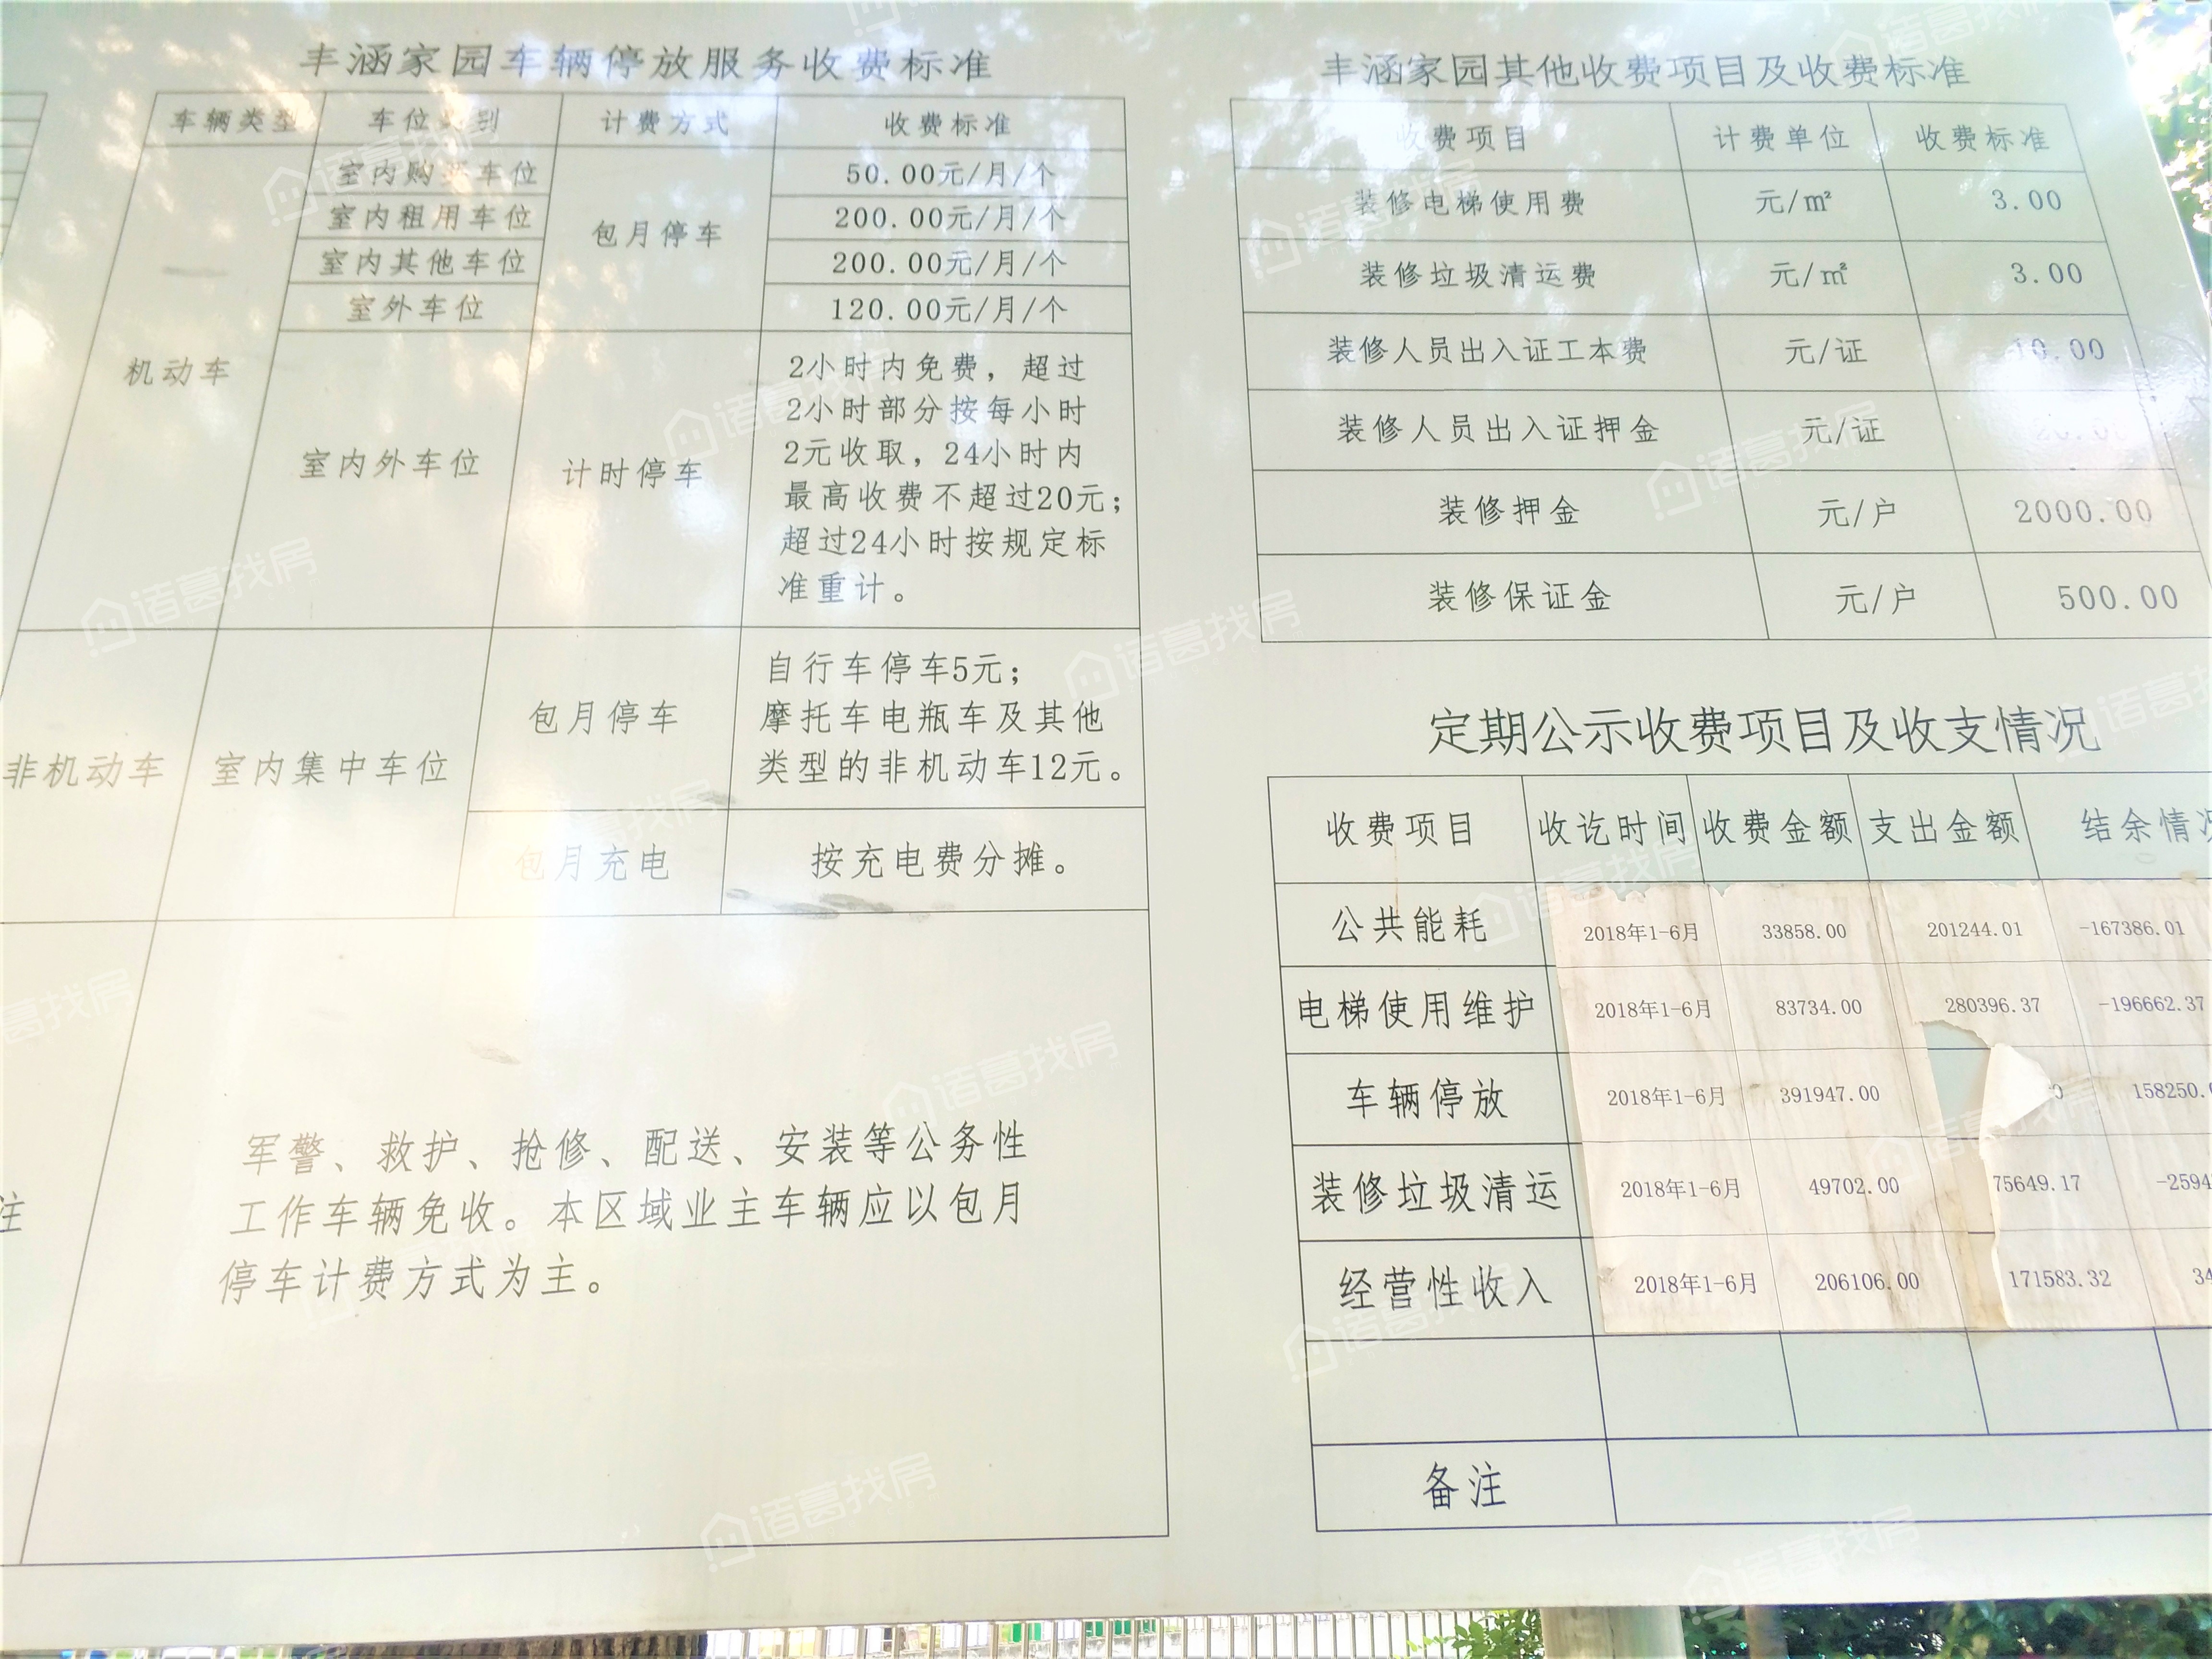 丰涵家园车辆停放服务收费标准
车辆类型 车位类别 计费方式 收费标准
机动车
室内购买车位 50.00元/月/个
室内租用车位 200.00元/月/个
包月停车
室内其他车位 200.00元/月/个
室外车位 120.00元/月/个
室内外车位 计时停车
2小时内免费，超过
2小时部分按每小时
2元收取，24小时内
最高收费不超过20元；
超过24小时按规定标
准重计。
非机动车 室内集中车位
包月停车
自行车停车5元；
摩托车电瓶车及其他
类型的非机动车12元。
包月充电 按充电费分摊。
注
军警、救护、抢修、配送、安装等公务性
工作车辆免收。本区域业主车辆应以包月
停车计费方式为主。
丰涵家园其他收费项目及收费标准
收费项目 计费单位 收费标准
装修电梯使用费 元/㎡ 3.00
装修垃圾清运费 元/㎡ 3.00
装修人员出入证工本费 元/证 10.00
装修人员出入证押金 元/证
装修押金 元/户 2000.00
装修保证金 元/户 500.00
定期公示收费项目及收支情况
收费项目 收讫时间 收费金额 支出金额 结余情况
公共能耗 2018年1-6月 33858.00 201244.01 -167386.01
电梯使用维护 2018年1-6月 83734.00 280396.37 -196662.37
车辆停放 2018年1-6月 391947.00 158250.
装修垃圾清运 2018年1-6月 49702.00 75649.17 -2594
经营性收入 2018年1-6月 206106.00 171583.32 34
备注
诸葛找房
诸葛找房
诸葛找房
诸葛找房
诸葛找房
诸葛找房
诸葛找房
诸葛找房